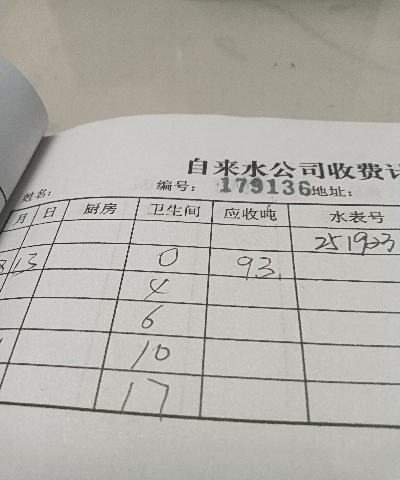 自来水公司收费计
姓名: 编号: 179136 地址:
月 日 厨房 卫生间 应收吨 水表号
251923
13 0 93
4
6
10
17